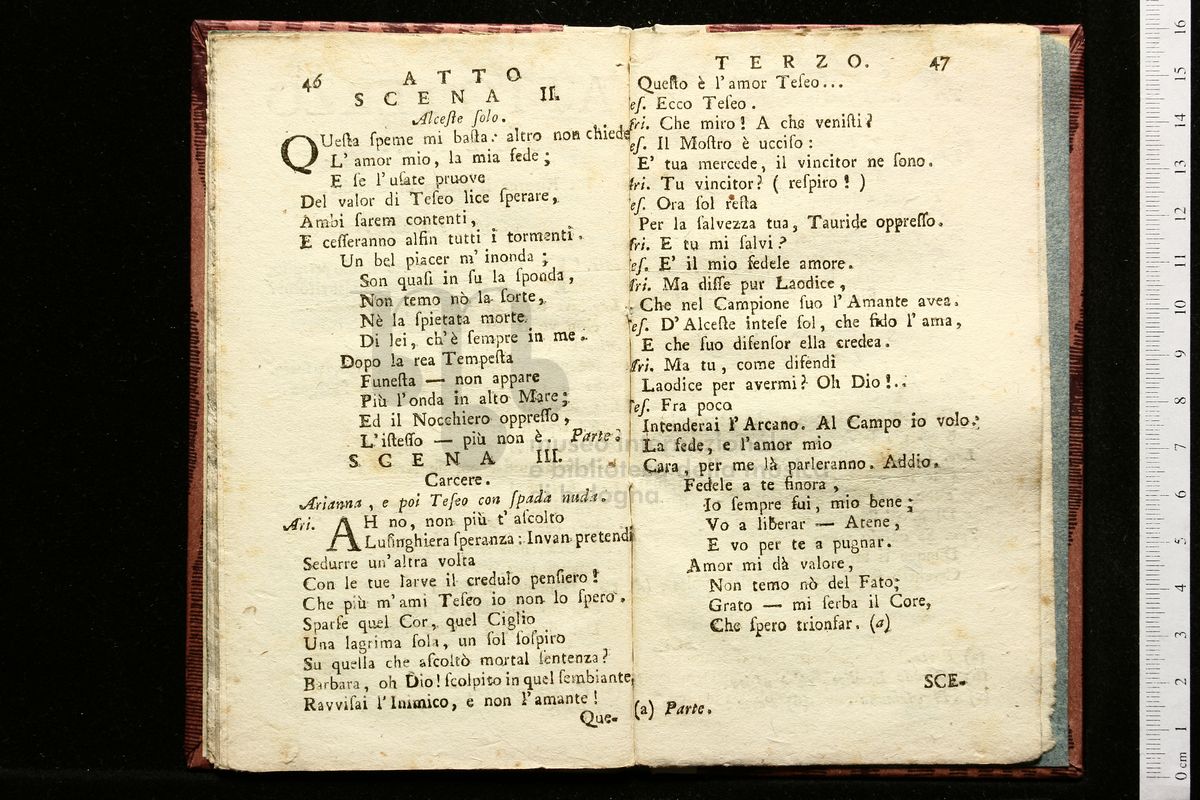 46 ATTO
SCENA II.
Alceste solo.
QUesta speme mi basta: altro non chiede
L' amor mio, la mia fede;
E se l'usate pruove
Del valor di Teseo lice sperare,
Ambi sarem contenti,
E cesseranno alfin tutti i tormenti.
Un bel piacer m' inonda;
Son quasi in su la sponda,
Non temo nò la sorte,
Nè la spietata morte
Di lei, ch'è sempre in me.
Dopo la rea Tempesta
Funesta — non appare
Più l'onda in alto Mare;
Ed il Nocchiero oppresso,
L'istesso — più non è. Parte.
SCENA III.
Carcere.
Arianna, e poi Teseo con spada nuda.
Ari. AH no, non più t' ascolto
Lusinghiera speranza: Invan pretendi
Sedurre un'altra volta
Con le tue larve il credulo pensiero!
Che più m'ami Teseo io non lo spero.
Sparse quel Cor, quel Ciglio
Una lagrima sola, un sol sospiro
Su quella che ascoltò mortal sentenza?
Barbara, oh Dio! scolpito in quel sembiante
Ravvisai l'Inimico, e non l'amante!
Que-
TERZO. 47
Questo è l'amor Teseo...
es. Ecco Teseo.
Ari. Che miro! A che venisti?
es. Il Mostro è ucciso:
E' tua mercede, il vincitor ne sono.
Ari. Tu vincitor? ( respiro! )
es. Ora sol resta
Per la salvezza tua, Tauride oppresso.
Ari. E tu mi salvi?
Tes. E' il mio fedele amore.
Ari. Ma disse pur Laodice,
Che nel Campione suo l'Amante avea.
Tes. D'Alceste intese sol, che fido l'ama,
E che suo difensor ella credea.
Ari. Ma tu, come difendi
Laodice per avermi? Oh Dio!..
Tes. Fra poco
Intenderai l'Arcano. Al Campo io volo:
La fede, e l'amor mio
Cara, per me là parleranno. Addio.
Fedele a te finora,
Io sempre fui, mio bene;
Vo a liberar — Atene,
E vo per te a pugnar.
Amor mi dà valore,
Non temo nò del Fato;
Grato — mi serba il Core,
Che spero trionfar. (a)
SCE-
(a) Parte.
museo internazionale
e biblioteca della musica
di bologna